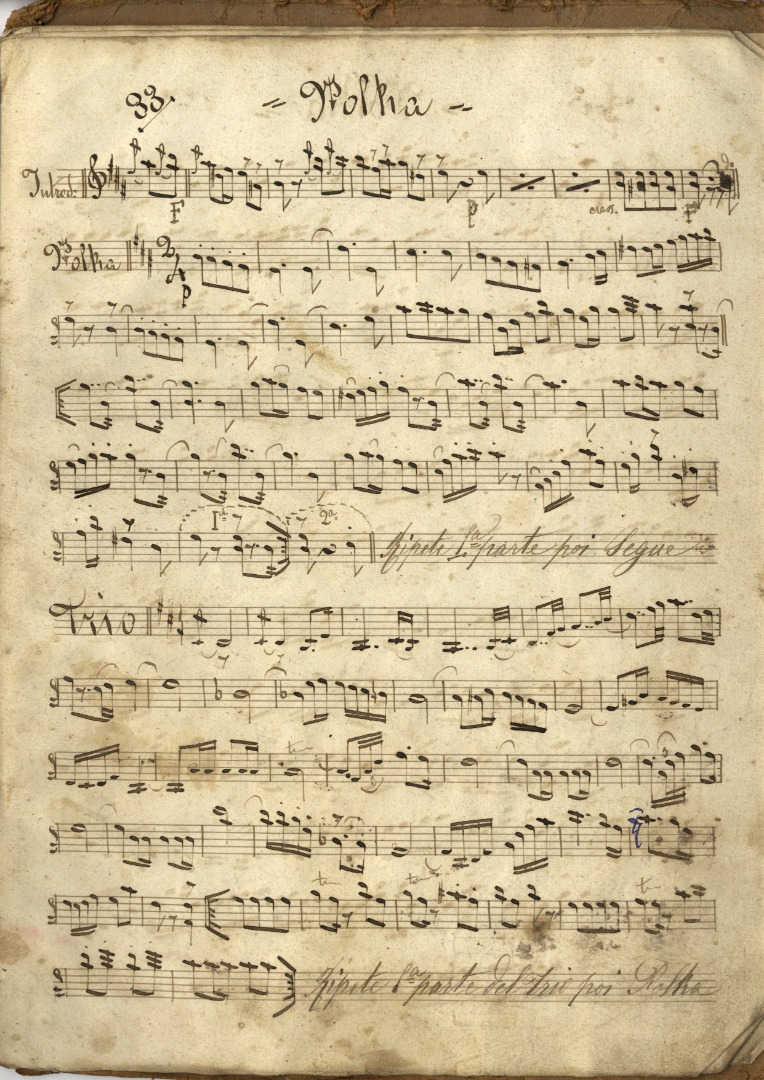 33. = Polka =
Introd:
F p cres. F
Polka 2/4
p
1ª 2ª Ripete 1ª parte poi Segue
Trio
ten
ten ten
Ripete 1ª parte del trio poi Polka